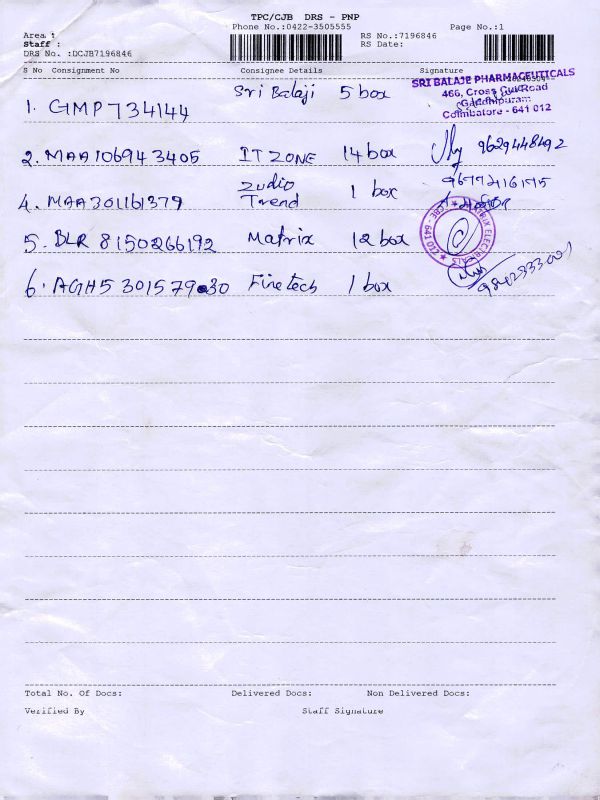 TPC/CJB DRS - PNP
Phone No.:0422-3505555 Page No.:1
Area :
Staff : RS No.:7196846
DRS No. :DCJB7196846 RS Date:
S No Consignment No Consignee Details Signature
1. GMP734144 Sri Balaji 5 box
SRI BALAJE PHARMACEUTICALS
466, Cross Cut Road
Gandhipuram
Coimbatore - 641 012
2. MAA106943405 IT ZONE 14 box 9629448492
4. MAA301161379 Zudio Trend 1 box 9677216175
5. BLR 8150266192 Matrix 12 box
MATRIX ELECTRICALS ★ CBE - 641 012 ★
6. AGH5 30157930 Finetech 1 box
Total No. Of Docs: Delivered Docs: Non Delivered Docs:
Verified By Staff Signature